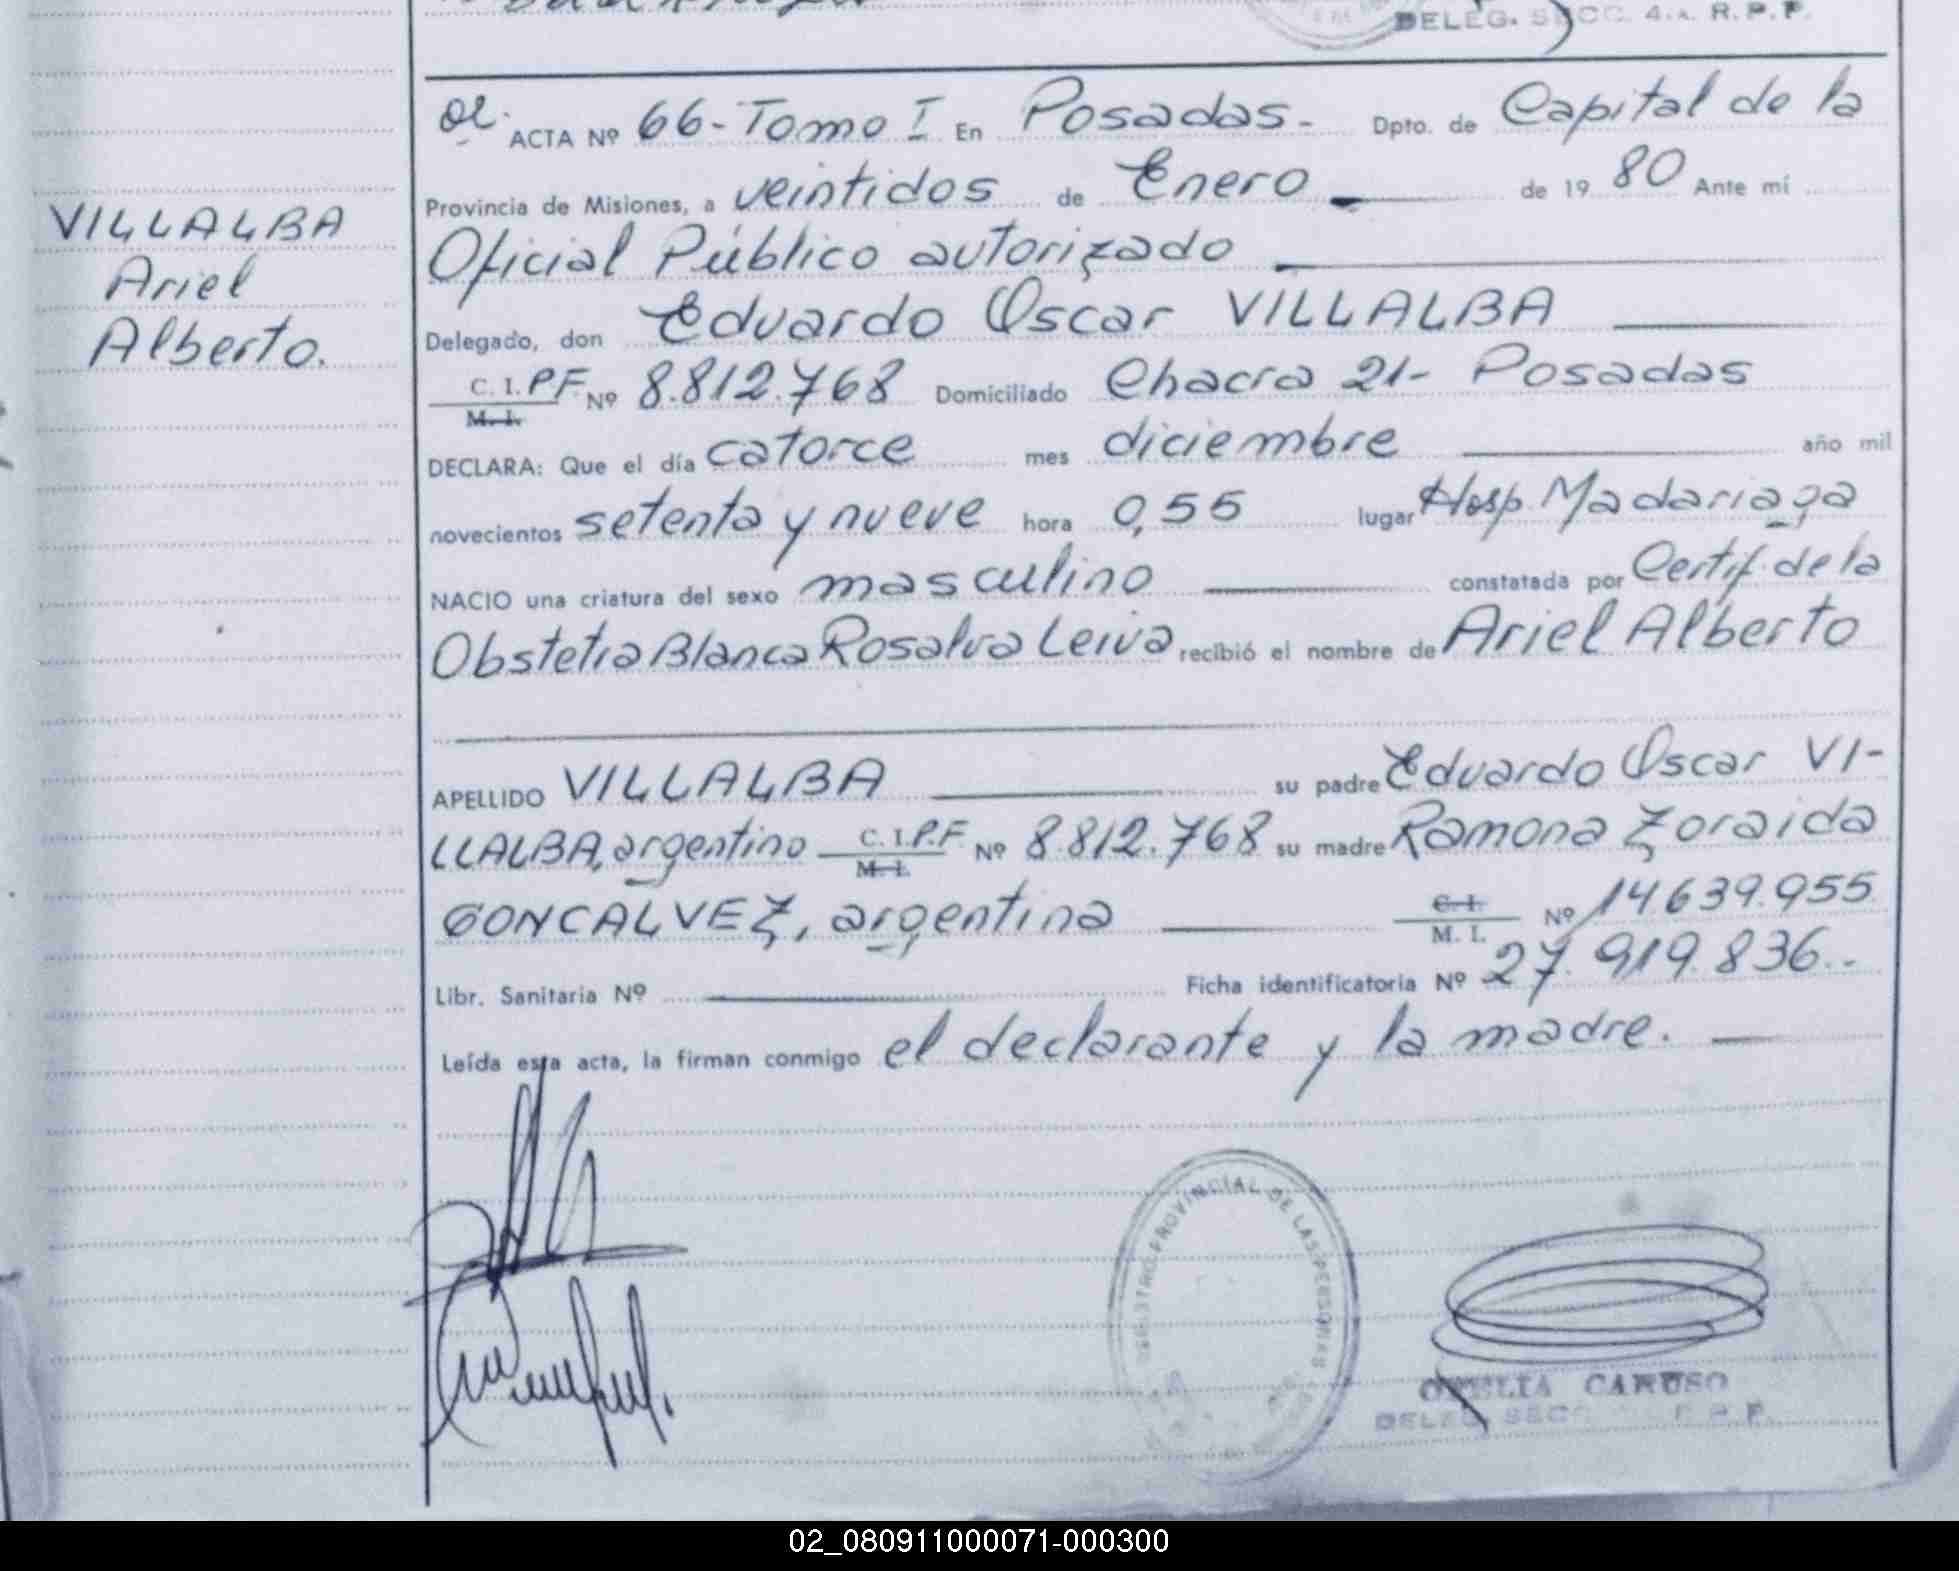 DELEG. SECC. 4.a. R.P.P.
ACTA Nº 66-Tomo I En Posadas- Dpto. de Capital de la
Provincia de Misiones, a veintidos de Enero de 19 80 Ante mí
Oficial Público autorizado
Delegado, don Eduardo Oscar VILLALBA
C. I. P.F. Nº 8.812.768 Domiciliado Chacra 21- Posadas
M. I.
DECLARA: Que el día catorce mes diciembre año mil
novecientos setenta y nueve hora 0,55 lugar Hosp. Madariaga
NACIO una criatura del sexo masculino constatada por Certif. de la
Obstetra Blanca Rosalva Leiva recibió el nombre de Ariel Alberto
APELLIDO VILLALBA su padre Eduardo Oscar VI-
LLALBA, argentino C. I. P.F. Nº 8.812.768 su madre Ramona Zoraida
M. I.
GONCALVEZ, argentina C. I. Nº 14.639.955
M. I.
Libr. Sanitaria Nº Ficha identificatoria Nº 27.919.836.-
Leída esta acta, la firman conmigo el declarante y la madre.
VILLALBA
Ariel
Alberto.
REGISTRO PROVINCIAL DE LAS PERSONAS
OFELIA CARUSO
DELEG. SECC. R.P.P.
02_080911000071-000300